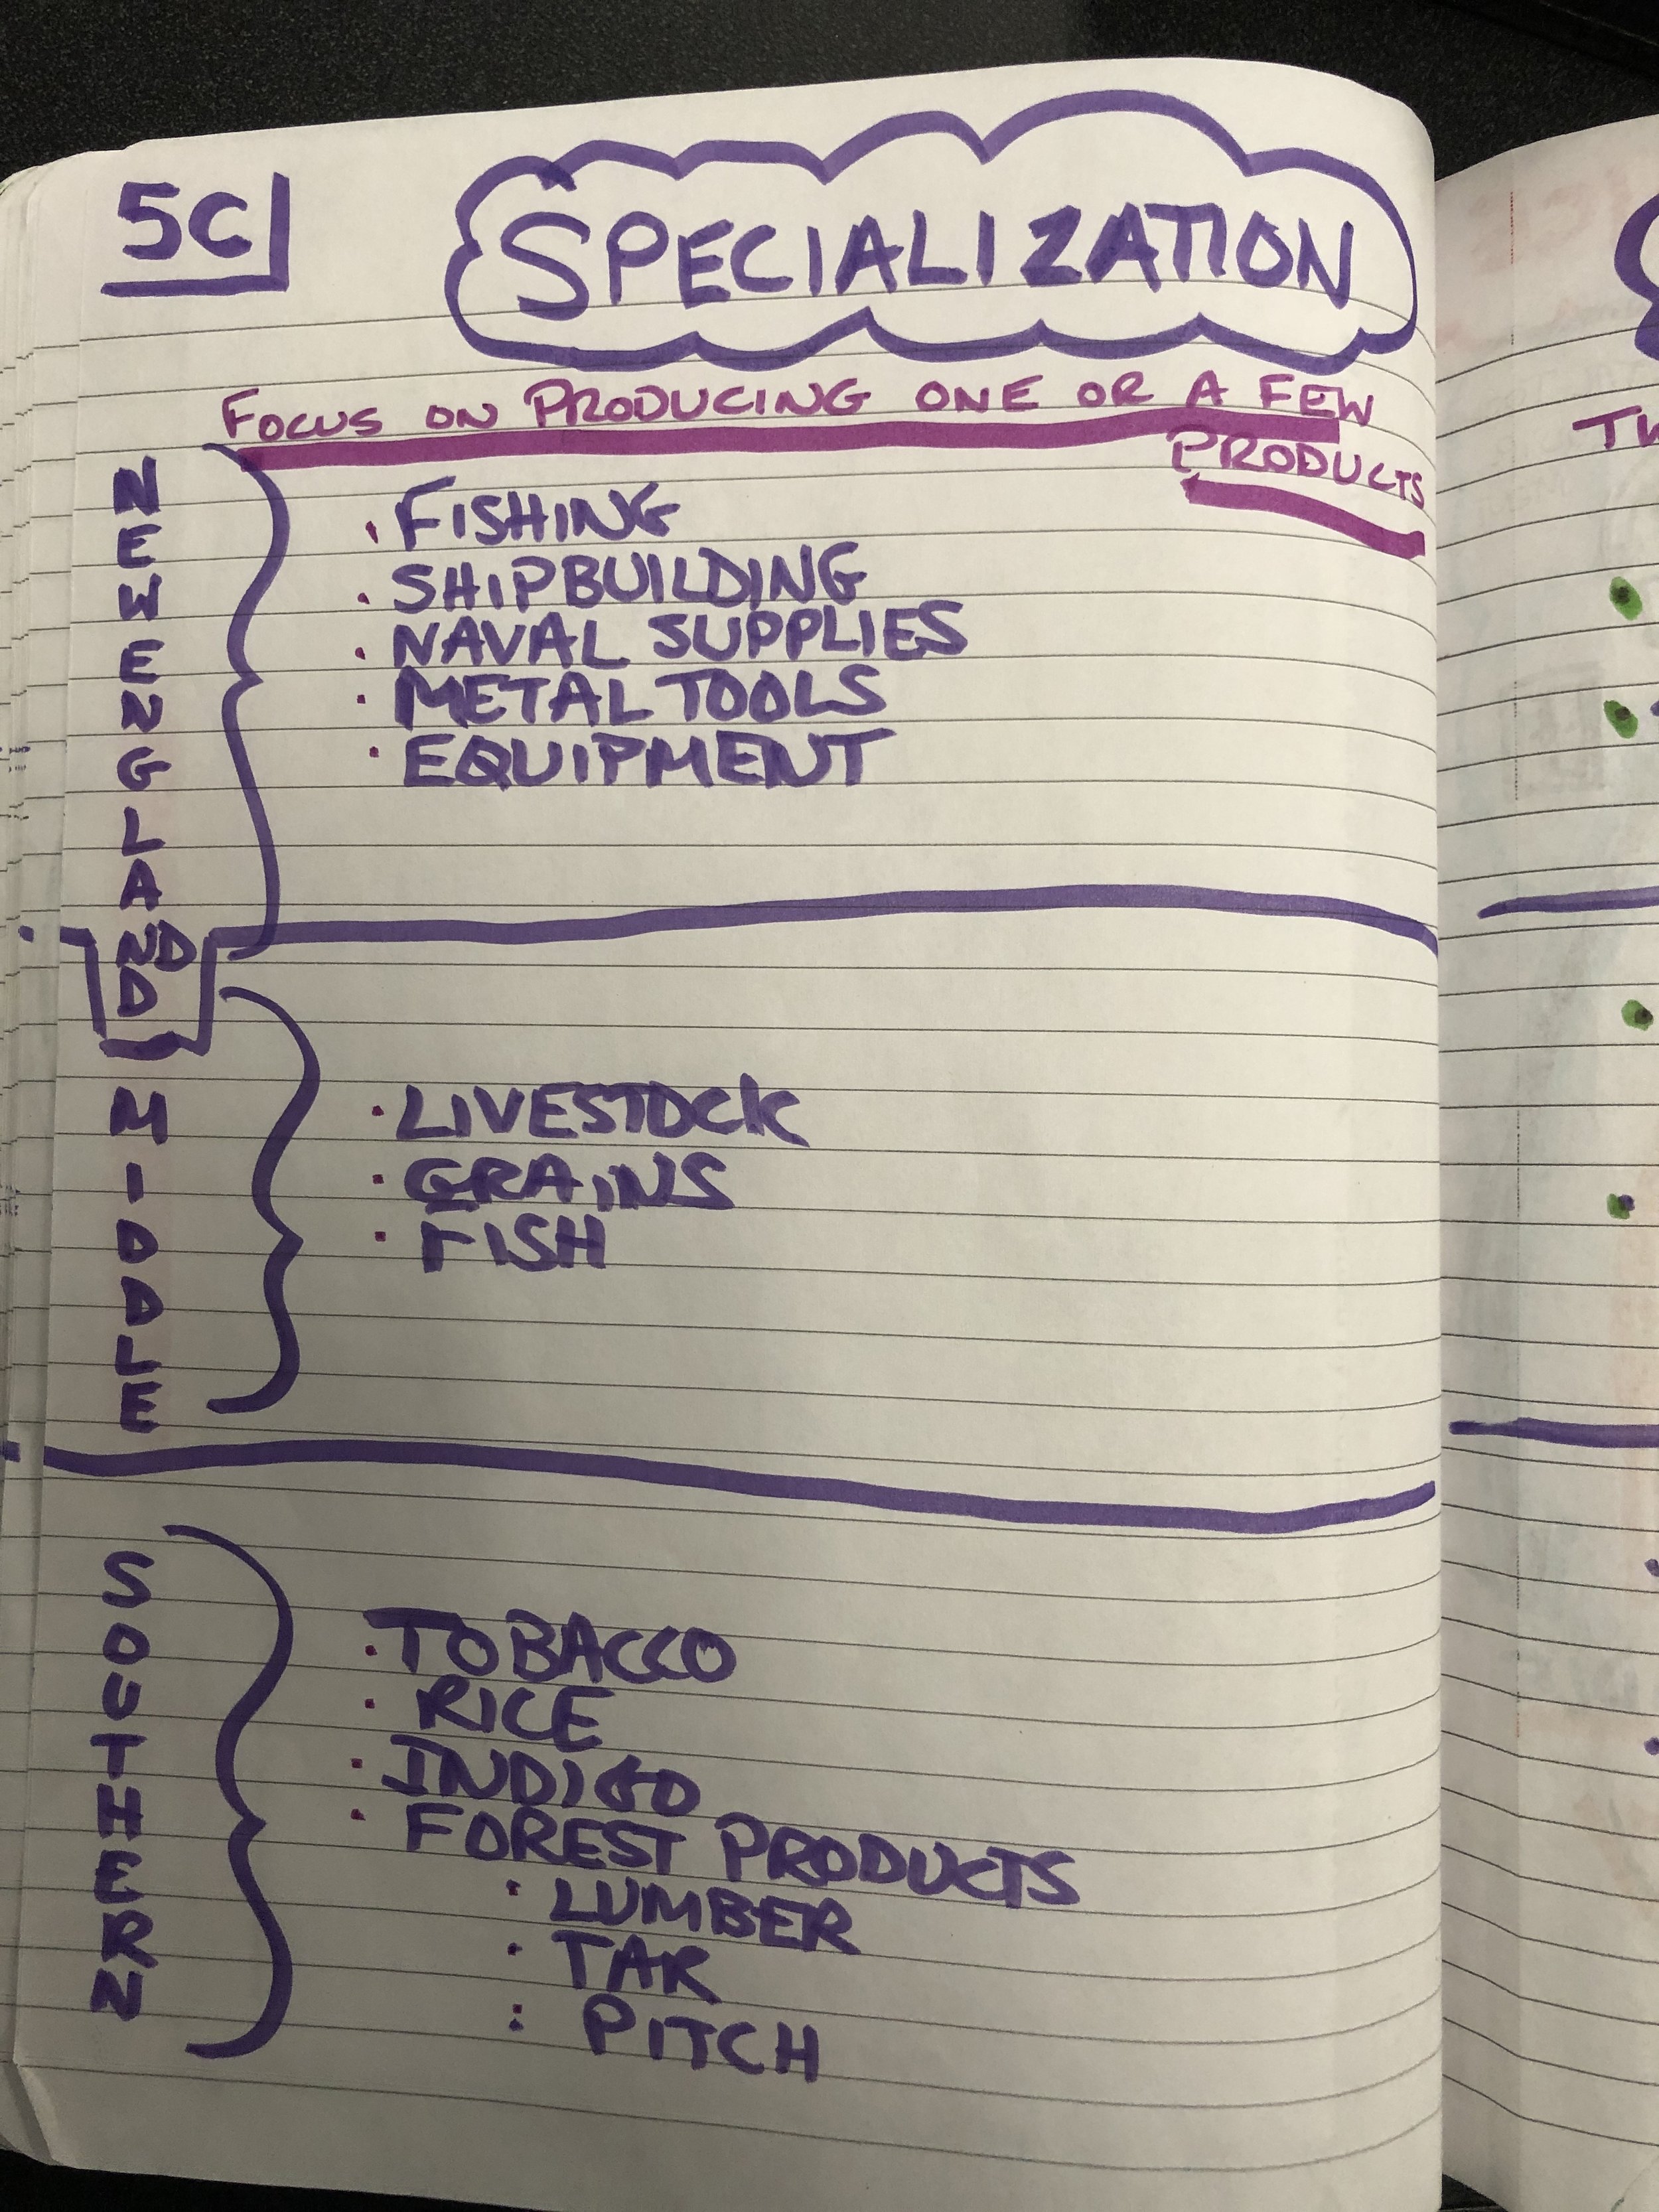 5C
SPECIALIZATION
FOCUS ON PRODUCING ONE OR A FEW
PRODUCTS
NEW ENGLAND
D
· FISHING
· SHIPBUILDING
· NAVAL SUPPLIES
· METAL TOOLS
· EQUIPMENT
MIDDLE
· LIVESTOCK
· GRAINS
· FISH
SOUTHERN
· TOBACCO
· RICE
· INDIGO
· FOREST PRODUCTS
· LUMBER
· TAR
· PITCH